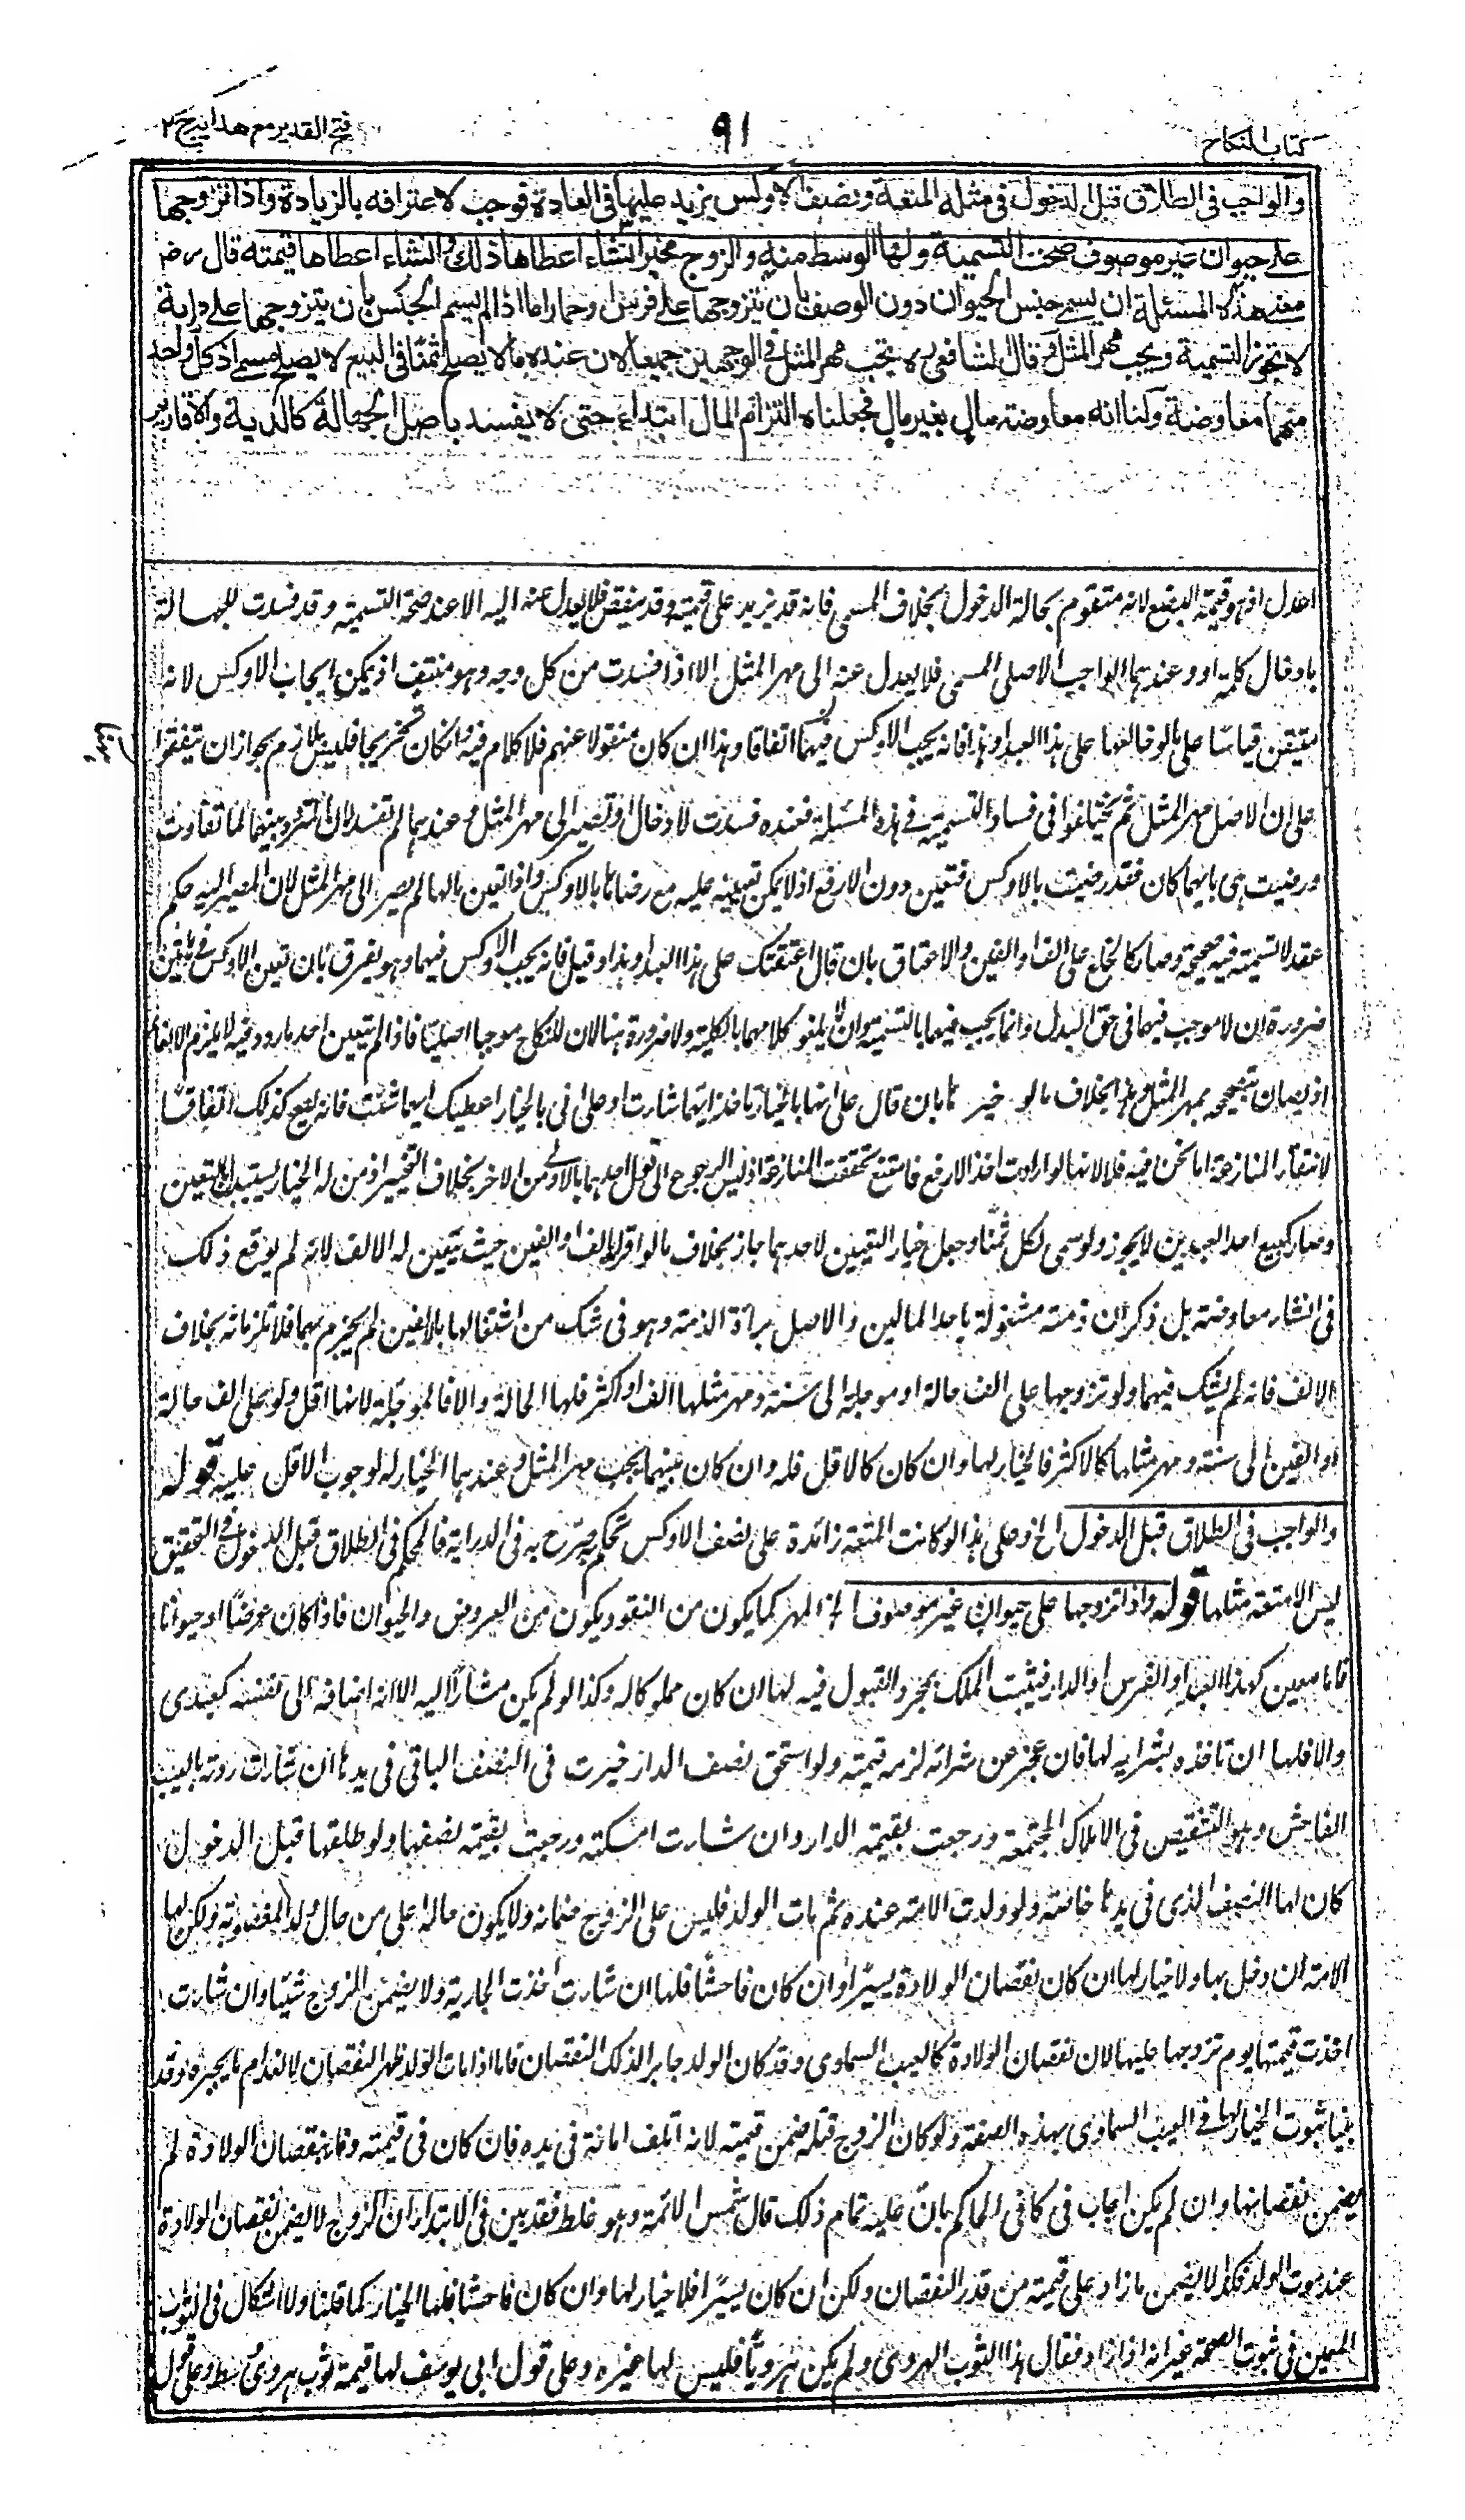 كتاب النكاح
٩١
فتح القدير مع هدايه ج ٢
والواجب فى الطلاق قبل الدخول فى مثله المتعة ونصف الاوكس يزيد عليها فى العادة فوجب لاعترافه بالزيادة واذا تزوجها
على حيوان غير موصوف صحت التسمية ولها الوسط منه والزوج مخير ان شاء اعطاها ذلك وان شاء اعطاها قيمته قال رض
معنى هذه المسئلة ان يسمى جنس الحيوان دون الوصف بان يتزوجها على فرس او حمار اما اذا لم يسم الجنس بان يتزوجها على دابة
لا تجوز التسمية ويجب مهر المثل وقال الشافعى رح يجب مهر المثل فى الوجهين جميعا لان عنده ما لا يصلح ثمنا فى البيع لا يصلح مسمى اذ كل واحد
منهما معاوضة ولنا انه معاوضة مال بغير مال فجعلناه التزام المال ابتداء حتى لا يفسد باصل الجهالة كالدية والاقارير
اعدل اذ هو قيمة البضع لانه متقوم بحالة الدخول بخلاف المسمى فانه قد يزيد على قيمته وقد ينقص فلا يعدل عنه اليه الا عند صحة التسمية وقد فسدت للجهالة
بادخال كلمة او وعندهما الواجب الاصلى المسمى فلا يعدل عنه الى مهر المثل الا اذا فسدت من كل وجه وهو منتف اذ يمكن ايجاب الاوكس لانه
متيقن قياسا على ما لو خالعها على هذا العبد او هذا فانه يجب الاوكس فيهما اتفاقا وهذا ان كان منقولا عنهم فلا كلام فيه وان كان تخريجا فليس بلازم بجواز ان يتفقوا
على ان الاصل مهر المثل ثم يختلفوا فى فساد التسمية فى هذه المسئلة فعنده فسدت لادخال او فيصير الى مهر المثل وعندهما لم تفسد لان المتردد بينهما لما تفاوت
ورضيت هى بايهما كان فقد رضيت بالاوكس فتعين دون الارفع اذ لا يمكن تعيينه عليه مع رضاها بالاوكس واذا تعين مالها لم يصر الى مهر المثل لان المصير اليه حكم
عقد لا تسمية فيه صحيحة وصار كالخلع على الف او الفين والاعتاق بان قال اعتقتك على هذا العبد او هذا وقبل فانه يجب الاوكس فيهما وهو يفرق بان تعين الاوكس فى هاتين
ضرورة ان لا موجب فيهما فى حق البدل وانما يجب فيهما بالتسمية وان يلغو كلامهما بالكلية ولا ضرورة هنا لان للنكاح موجبا اصليا فاذا لم يتعين احد ما ردد فيه لا يلزم الالغاء
اذ يصان بتصحيحه بمهر المثل وهذا بخلاف ما لو خيرها بان قال على انها بالخيار تاخذ ايهما شاءت او على انى بالخيار اعطيك ايهما شئت فانه يصح كذلك اتفاقا
لانتفاء المنازعة اما نحن فيه فلا لانها لو ارادت اخذ الارفع فامتنع تحققت المنازعة اذ ليس الرجوع الى قول احدهما باولى من الاخر بخلاف التخيير اذ من له الخيار يستبد بالتعيين
وصار كبيع احد العبدين لا يجوز ولو سمى لكل ثمنا وجعل خيار التعيين لاحدهما جاز بخلاف ما لو اقر بالف او الفين حيث يتعين له الالف لانه لم يوقع ذلك
فى انشاء معاوضة بل ذكر ان ذمته مشغولة باحد المالين والاصل برأة الذمة وهو فى شك من اشتغالها بالالفين لم يجزم بهما فلا تلزمانه بخلاف
الالف فانه لم يشك فيهما ولو تزوجها على الف حالة او مؤجلة الى سنة ومهر مثلها الف او اكثر فلها الحالة والا فالمؤجلة لانها اقل ولو على الف حالة
او الفين الى سنة ومهر مثلها كالاكثر فالخيار لها وان كان كالاقل فله وان كان بينهما يجب مهر المثل وعندهما الخيار له لوجوب الاقل عليه قوله
والواجب فى الطلاق قبل الدخول الخ وعلى هذا لو كانت المتعة زائدة على نصف الاوكس تحكم صرح به فى الدراية فالمحكم فى الطلاق قبل الدخول فى التحقيق
ليس الا متعة مثلها قوله واذا تزوجها على حيوان غير موصوف الخ المهر كما يكون من النقود يكون من العروض والحيوان فاذا كان عرضا او حيوانا
فاما معين كهذا العبد او الفرس او الدار فيثبت الملك بمجرد القبول فيه لها ان كان مملوكا له وكذا لو لم يكن مشارا اليه الا انه اضافه الى نفسه كعبدى
والا فلها ان تاخذه بشرايه لها فان عجز عن شرائه لزمه قيمته ولو استحق نصف الدار خيرت فى النصف الباقى فى يدها ان شاءت ردته بالعيب
الفاحش وهو التشقيص فى الاملاك المجتمعة ورجعت بقيمة الدار وان شاءت امسكته ورجعت بقيمة نصفها ولو طلقها قبل الدخول
كان لها النصف الذى فى يدها خاصة ولو ولدت الامة عنده ثم مات الولد فليس على الزوج ضمانه ولا يكون حاله اعلى من حال ولد المغصوبة ولكن لها
الامة ان دخل بها ولا خيار لها ان كان نقصان الولادة يسيرا وان كان فاحشا فلها ان شاءت اخذت الجارية ولا يضمن الزوج شيئا وان شاءت
اخذت قيمتها يوم تزوجها عليها لان نقصان الولادة كالعيب السماوى وقد كان الولد جابرا لذلك النقصان فاما اذا مات الولد ظهر النقصان لانعدام ما يجبره وقد
بينا ثبوت الخيار لها فى العيب السماوى بهذه الصفة ولو كان الزوج قتله ضمن قيمته لانه اتلف امانة فى يده فان كان فى قيمته وفاء بنقصان الولادة لم
يضمن نقصانها وان لم يكن اجاب فى كافى الحاكم بان عليه تمام ذلك قال شمس الائمة وهو غلط فقد بين فى الابتداء ان الزوج لا يضمن نقصان الولادة
عند موت الولد فكذا لا يضمن ما زاد على قيمته من قدر النقصان ولكن ان كان يسيرا فلا خيار لها وان كان فاحشا فلها الخيار كما قلنا ولا اشكال فى الثوب
المعين فى ثبوت الصحة غير انه اذا زاد فقال هذا الثوب الهروى ولم يكن هرويا فليس لها غيره وعلى قول ابى يوسف لها قيمة ثوب هروى وسط وعلى قول